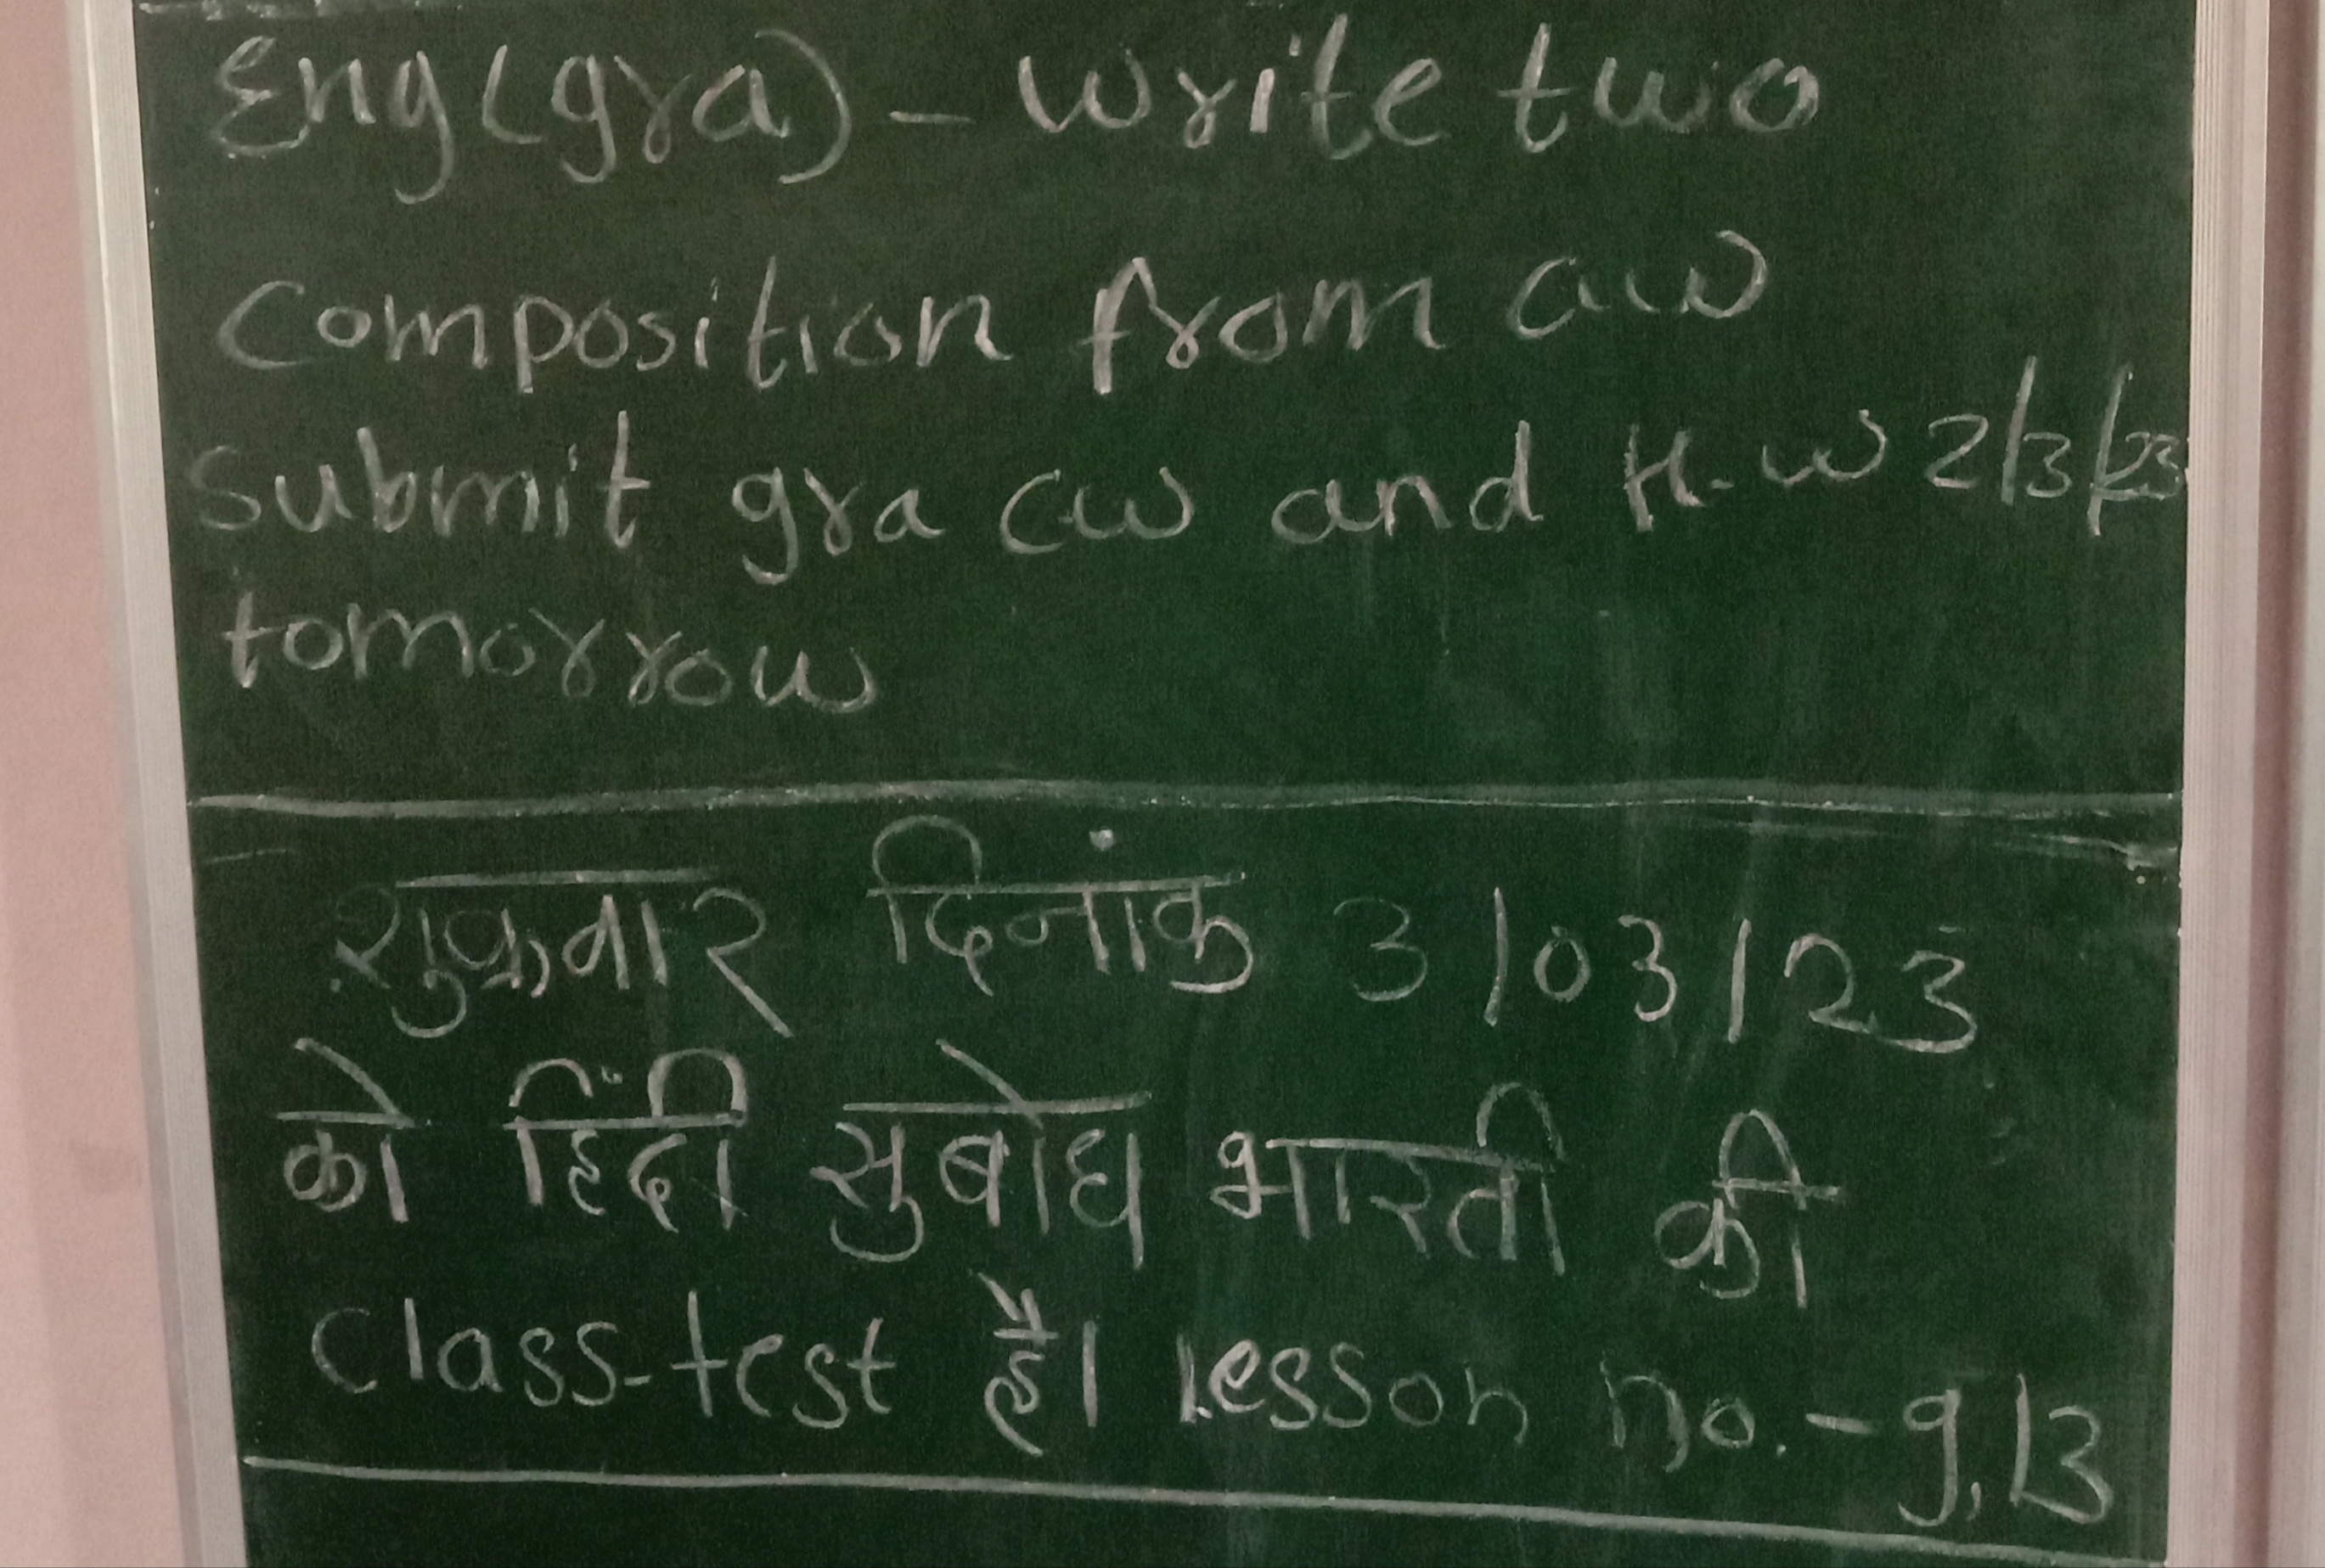 Eng(gra) - write two
composition from cw
submit gra cw and H.W 2/3/23
tomorrow
शुक्रवार दिनांक 3/03/23
को हिंदी सुबोध भारती की
class-test है। Lesson no. - 9, 13